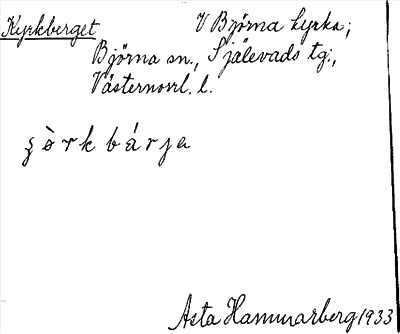 Kyrkberget V Björna kyrka;
Björna sn., Själevads tg:,
Västernorrl. l.
ʂ ò r k b á r j a
Asta Hammarberg 1933